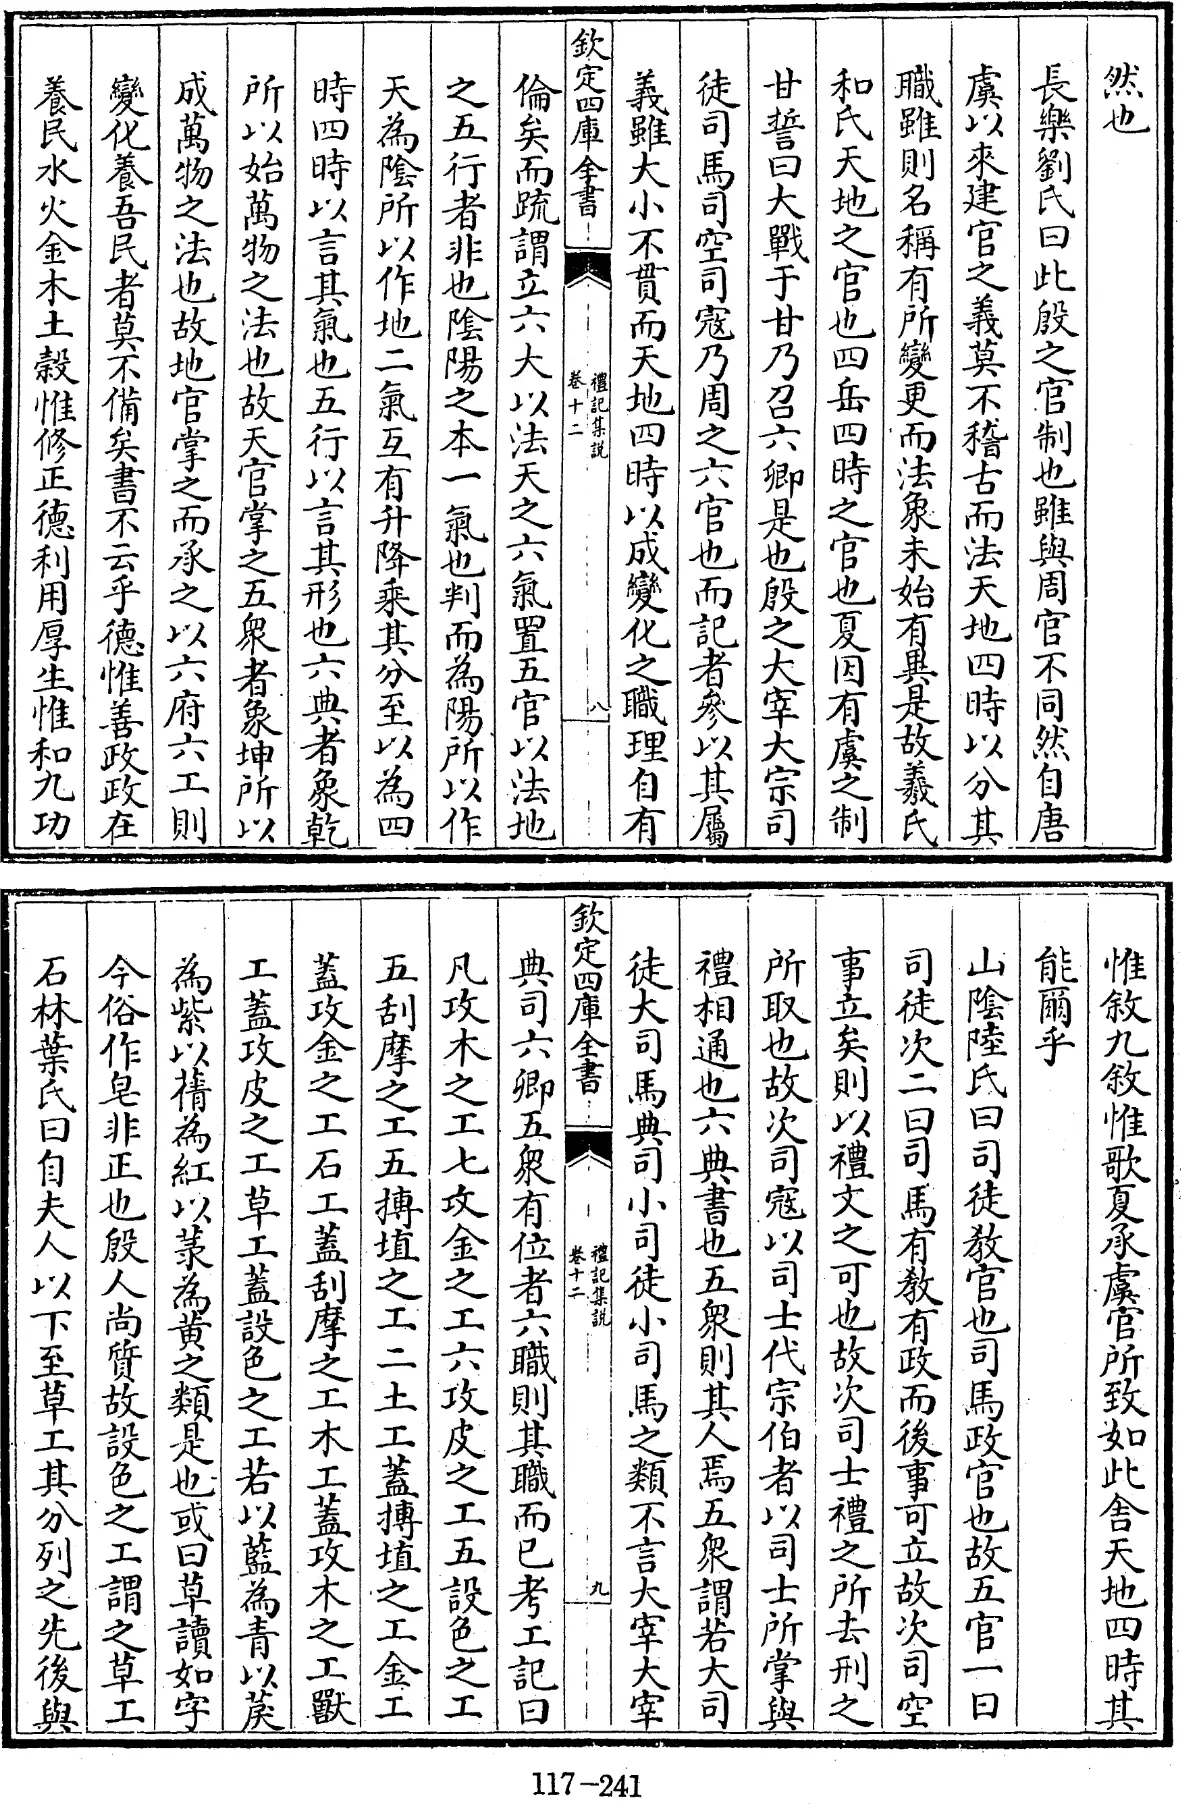 然也
長樂劉氏曰此殷之官制也雖與周官不同然自唐
虞以來建官之義莫不稽古而法天地四時以分其
職雖則名稱有所變更而法象未始有異是故羲氏
和氏天地之官也四岳四時之官也夏因有虞之制
甘誓曰大戰于甘乃召六卿是也殷之大宰大宗司
徒司馬司空司寇乃周之六官也而記者參以其屬
義雖大小不貫而天地四時以成變化之職理自有
欽定四庫全書
禮記集說
卷十二
八
倫矣而疏謂立六大以法天之六氣置五官以法地
之五行者非也陰陽之本一氣也判而為陽所以作
天為陰所以作地二氣互有升降乘其分至以為四
時四時以言其氣也五行以言其形也六典者象乾
所以始萬物之法也故天官掌之五衆者象坤所以
成萬物之法也故地官掌之而承之以六府六工則
變化養吾民者莫不備矣書不云乎德惟善政政在
養民水火金木土榖惟修正德利用厚生惟和九功
惟敘九敘惟歌夏承虞官所致如此舍天地四時其
能爾乎
山陰陸氏曰司徒教官也司馬政官也故五官一曰
司徒次二曰司馬有教有政而後事可立故次司空
事立矣則以禮文之可也故次司士禮之所去刑之
所取也故次司寇以司士代宗伯者以司士所掌與
禮相通也六典書也五衆則其人焉五衆謂若大司
徒大司馬典司小司徒小司馬之類不言大宰大宰
欽定四庫全書
禮記集說
卷十二
九
典司六卿五衆有位者六職則其職而已考工記曰
凡攻木之工七攻金之工六攻皮之工五設色之工
五刮摩之工五搏埴之工二土工蓋搏埴之工金工
蓋攻金之工石工蓋刮摩之工木工蓋攻木之工獸
工蓋攻皮之工草工蓋設色之工若以藍為青以茰
為紫以蒨為紅以菉為黃之類是也或曰草讀如字
今俗作皂非正也殷人尚質故設色之工謂之草工
石林葉氏曰自夫人以下至草工其分列之先後與
117-241